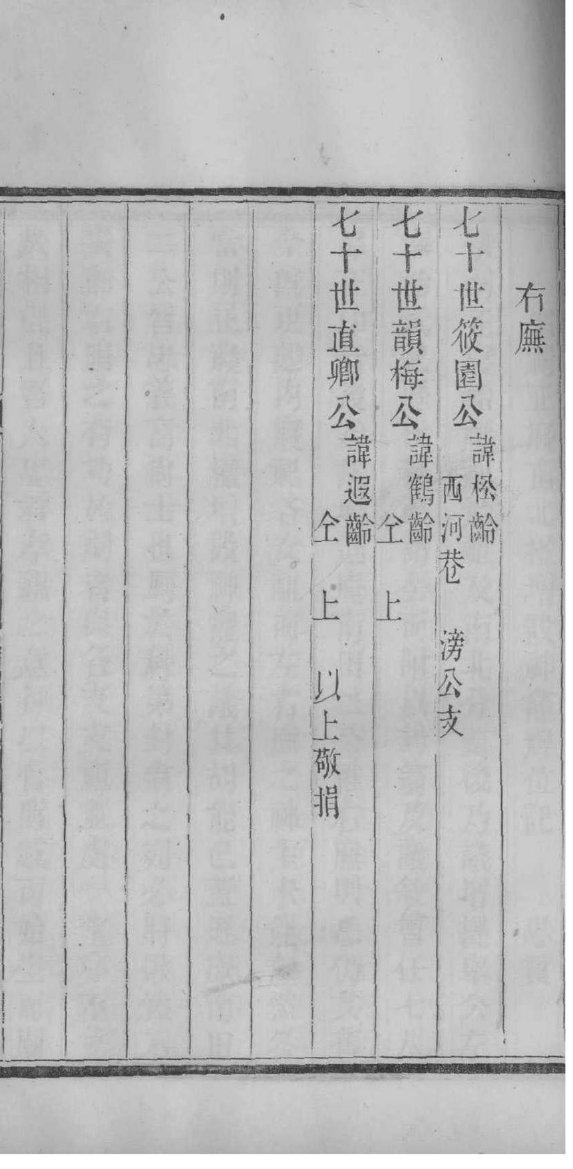 右廡
七十世筱園公 諱松齡 西河巷 滂公支
七十世韻梅公 諱鶴齡 仝 上
七十世直卿公 諱遐齡 仝 上 以上敬捐